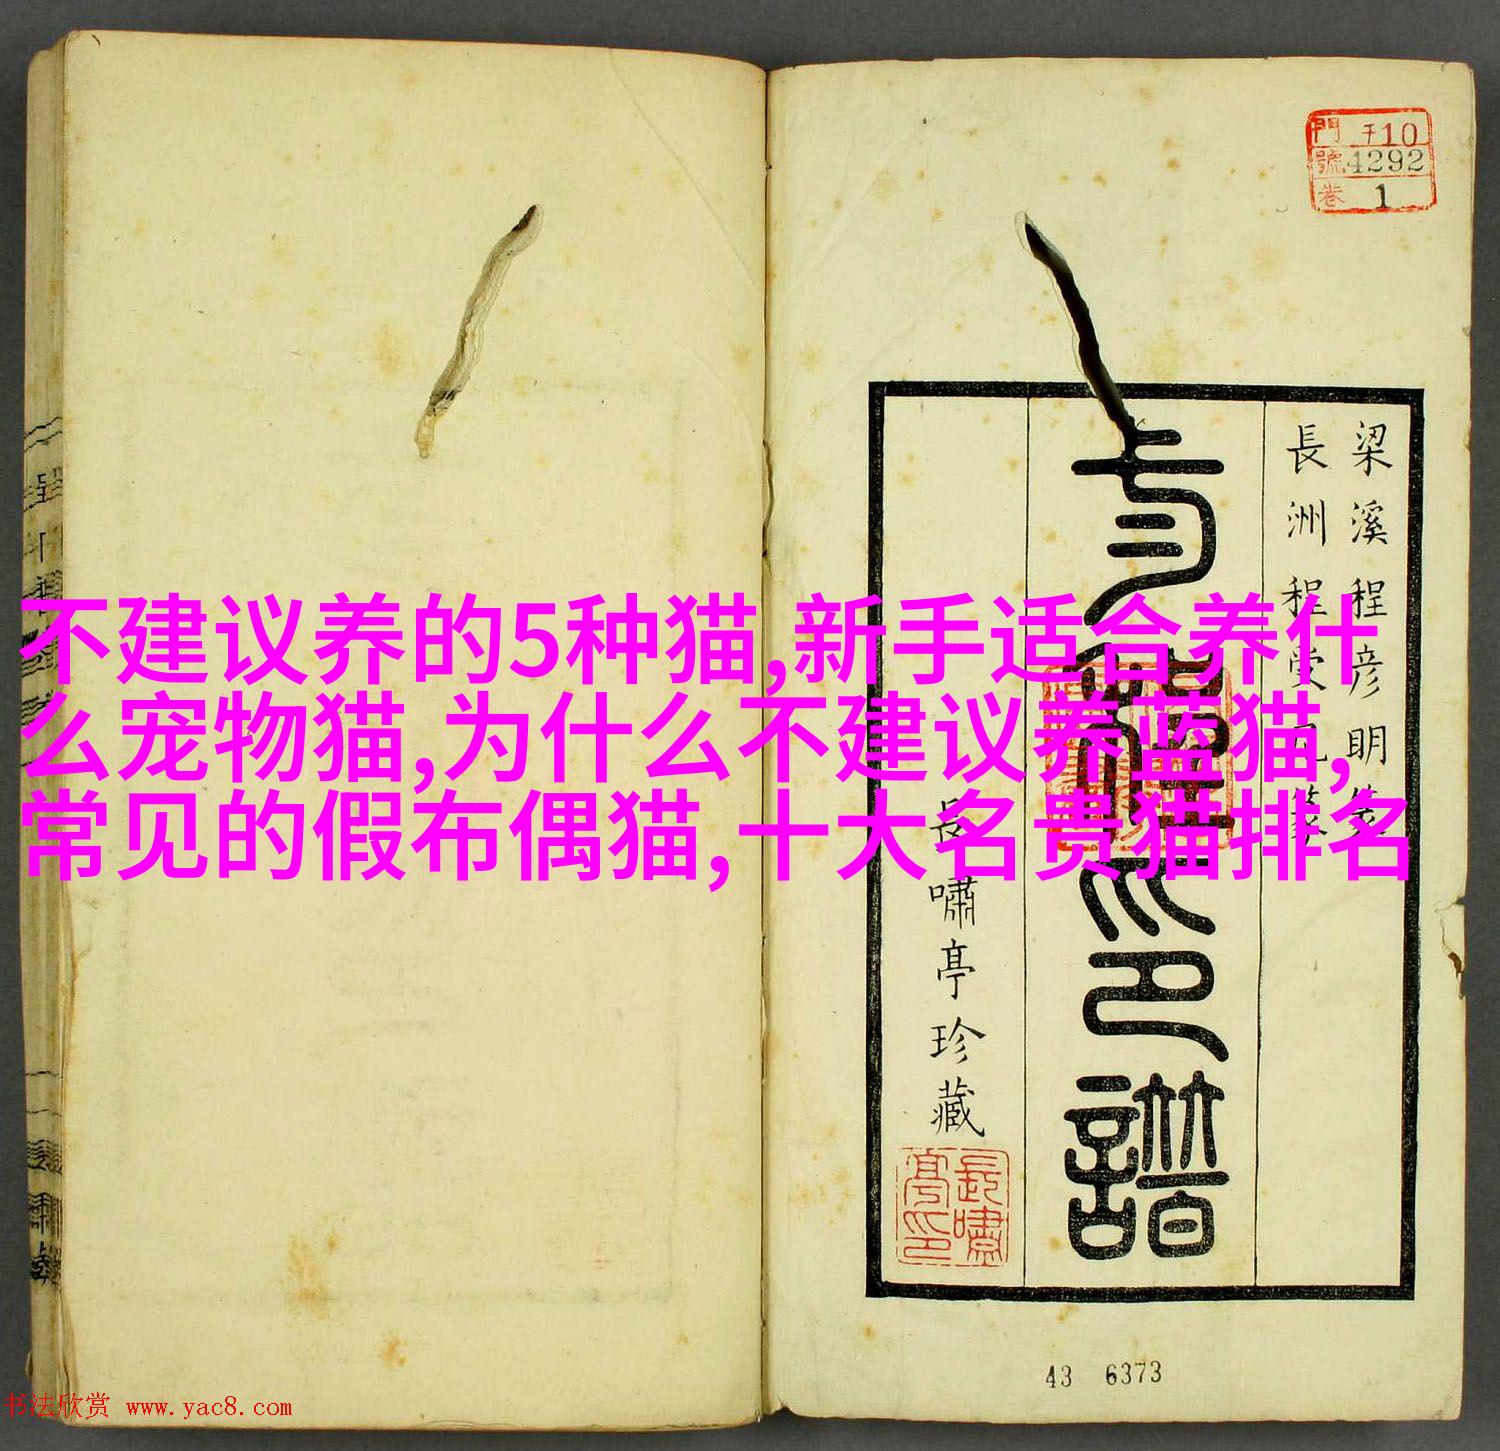 門 千10
號 4292
卷 1
梁溪程彦明
長洲程受
印譜
長嘯亭珍藏
長嘯亭印
不建议养的5种猫,新手适合养什
么宠物猫,为什么不建议养蓝猫,
常见的假布偶猫,十大名贵猫排名
43 6373
书法欣赏 www.yac8.com